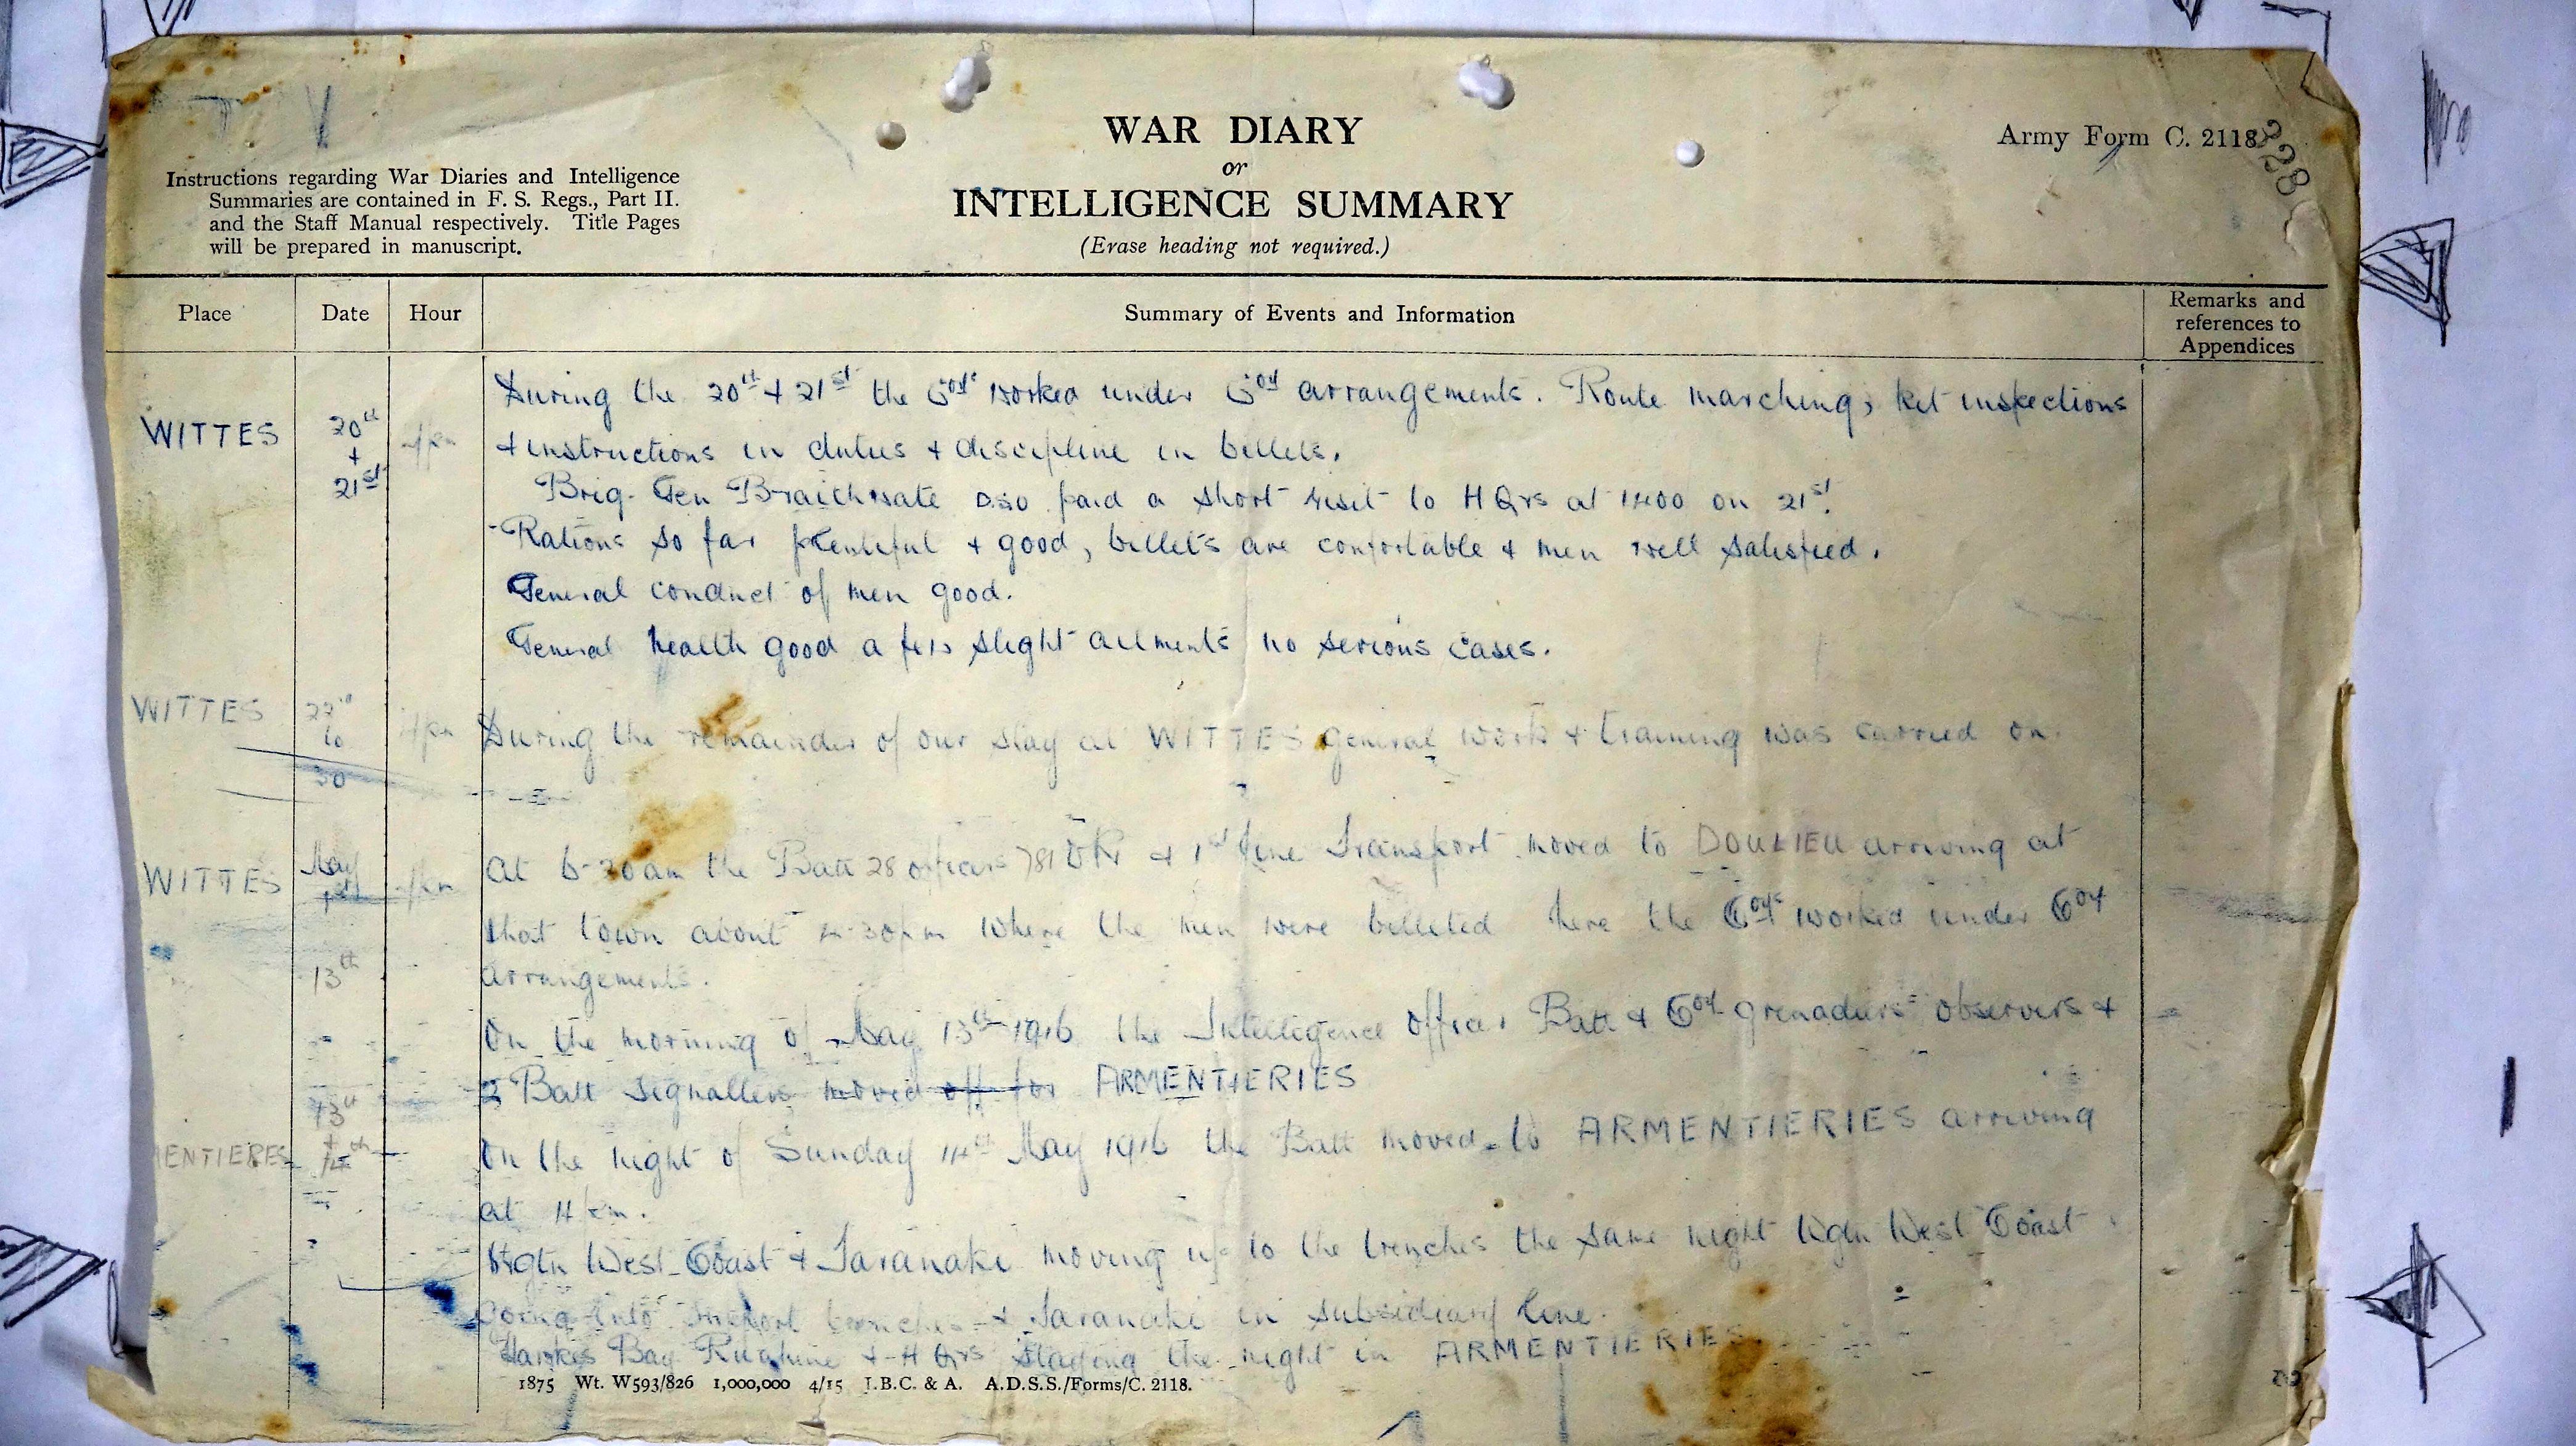 WAR DIARY
or
INTELLIGENCE SUMMARY
(Erase heading not required.)
Army Form C. 2118
328
Instructions regarding War Diaries and Intelligence
Summaries are contained in F. S. Regs., Part II.
and the Staff Manual respectively. Title Pages
will be prepared in manuscript.
Place Date Hour Summary of Events and Information Remarks and
references to
Appendices
During the 20th + 21st the Coys worked under Coy arrangements. Route marching, kit inspections
WITTES 20th + 21st
+ instructions in duties + discipline in billets.
Brig. Gen paid a short visit to HQrs at 1400 on 21st.
Rations so far plentiful + good, billets are comfortable + men well satisfied.
General conduct of men good.
General health good a few slight ailments no serious cases.
WITTES 22nd to 30 During the remainder of our stay at WITTES general work + training was carried on.
WITTES May 1st At 6-30am the Batt 28 officers 781 OR + 1st line Transport moved to DOULIEU arriving at
that town about 4-30pm where the men were billeted here the Coys worked under Coy
13th arrangements.
On the morning of May 13th 1916 the Intelligence Officer Batt + Coy grenadiers observers +
2 Batt signallers moved off for ARMENTIERIES
13th + 14th
MENTIERES On the night of Sunday 14th May 1916 the Batt moved to ARMENTIERIES arriving
at 11pm.
Wgtn West Coast + Taranaki moving up to the trenches the same night Wgtn West Coast
going into support trenches + Taranaki in subsidiary line.
Hawkes Bay Ruahine + H Qrs staying the night in ARMENTIERIES
1875 Wt. W593/826 1,000,000 4/15 J.B.C. & A. A.D.S.S./Forms/C. 2118.